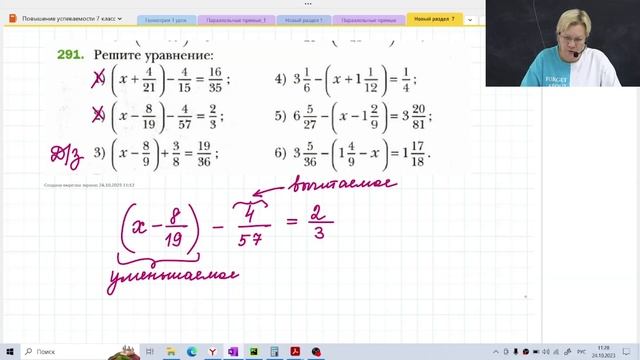 Повышение успеваемости 7 класс
Геометрия 1 урок
Параллельные прямые_1
Новый раздел 1
Параллельные прямые
Новый раздел 7
291. Решите уравнение:
1) (x + 4/21) − 4/15 = 16/35;
4) 3 1/6 − (x + 1 1/12) = 1/4;
2) (x − 8/19) − 4/57 = 2/3;
5) 6 5/27 − (x − 1 2/9) = 3 20/81;
Д/з 3) (x − 8/9) + 3/8 = 19/36;
6) 3 5/36 − (1 4/9 − x) = 1 17/18.
вычитаемое
(x − 8/19) − 4/57 = 2/3
уменьшаемое
FORGET
ABOUT
Поиск
РУС
11:28
24.10.2023